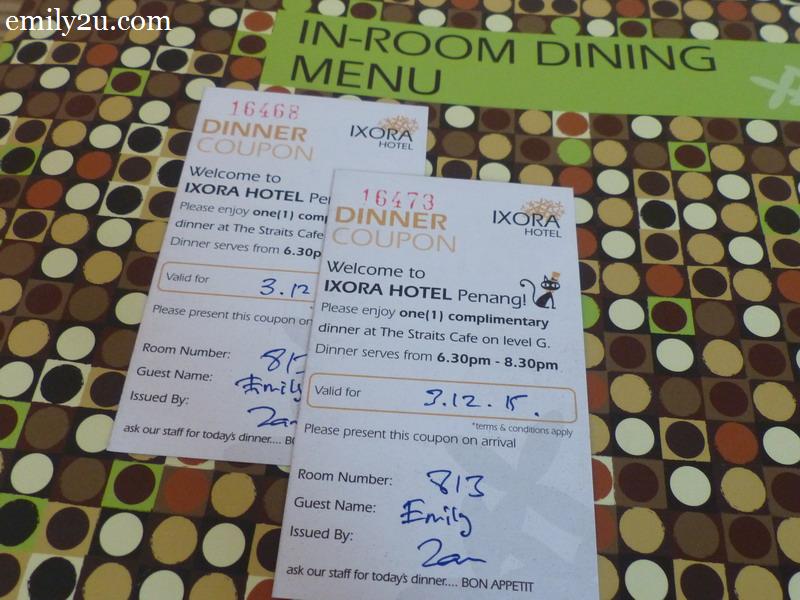 emily2u.com
IN-ROOM DINING
MENU
16468
DINNER
COUPON
IXORA
HOTEL
Welcome to
IXORA HOTEL
Please enjoy one(1)
dinner at The Straits Cafe
Dinner serves from 6.30p
Valid for 3.12
Please present this coupon on
Room Number: 813
Guest Name: Emily
Issued By: Zan
ask our staff for today's dinner.... BO
16473
DINNER
COUPON
IXORA
HOTEL
Welcome to
IXORA HOTEL Penang!
Please enjoy one(1) complimentary
dinner at The Straits Cafe on level G.
Dinner serves from 6.30pm - 8.30pm
Valid for 3.12.15.
*terms & conditions apply
Please present this coupon on arrival
Room Number: 813
Guest Name: Emily
Issued By: Zan
ask our staff for today's dinner.... BON APPETIT